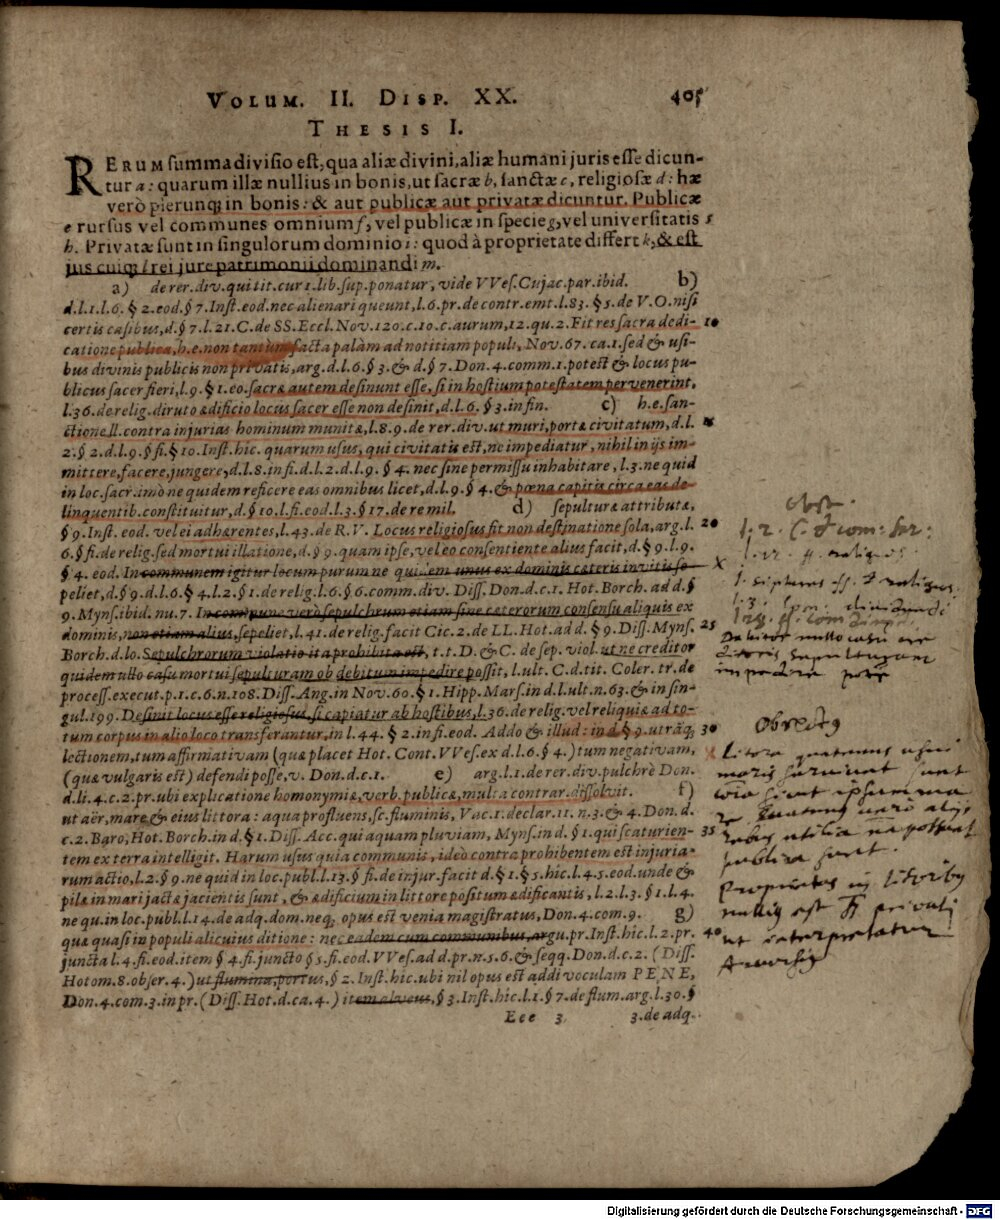 VOLUM. II. DISP. XX. 405
THESIS I.
RERUM summa divisio est, qua aliæ divini, aliæ humani juris esse dicun-
tur a: quarum illæ nullius in bonis, ut sacræ b, sanctæ c, religiosæ d: hæ
verò plerunq; in bonis: & aut publicæ aut privatæ dicuntur. Publicæ
e rursus vel communes omnium f, vel publicæ in specie g, vel universitatis 5
h. Privatæ sunt in singulorum dominio i: quod à proprietate differt k, & est
jus cuiq; l rei jure patrimonii dominandi m.
a) de rer. div. qui tit. cur 1. lib. sup. ponatur, vide VVes. Cujac. par. ibid. b)
d.l.1.l.6. § 2. eod. § 7. Inst. eod. nec alienari queunt, l.6. pr. de contr. emt. l.83. § 5. de V.O. nisi
certis casibus, d. § 7. l.21. C. de SS. Eccl. Nov. 120. c.10. c. aurum, 12. qu. 2. Fit res sacra dedi- 10
catione publica, h.e. non tantùm facta palàm ad notitiam populi, Nov. 67. ca. 1. sed & usi-
bus divinis publicis non privatis, arg. d.l.6. § 3. & d. § 7. Don. 4. comm. 1. potest & locus pu-
blicus sacer fieri, l.9. § 1. eo. sacræ autem desinunt esse, si in hostium potestatem pervenerint,
l.36. de relig. diruto ædificio locus sacer esse non desinit, d.l.6. § 3. in fin. c) h.e. san-
ctione ll. contra injurias hominum munitæ, l.8.9. de rer. div. ut muri, portæ civitatum, d.l.
2. § 2. d.l.9. § fi. § 10. Inst. hic. quarum usus, qui civitatis est, ne impediatur, nihil in ijs im-
mittere, facere, jungere, d.l.8. in fi. d.l.2. d.l.9. § 4. nec sine permissu inhabitare, l.3. ne quid
in loc. sacr. imò ne quidem reficere eas omnibus licet, d.l.9. § 4. & pœna capitis circa eas de-
linquentib. constituitur, d. § 10. l.fi. eod. l.3. § 17. de re mil. d) sepulturæ attributæ,
§ 9. Inst. eod. vel ei adhærentes, l.43. de R.V. Locus religiosus fit non destinatione sola, arg. l. 20
6. § fi. de relig. sed mortui illatione, d. § 9. quam ipse, vel eo consentiente alius facit, d. § 9. l.9.
§ 4. eod. In communem igitur locum purum ne quidem unus ex dominis cæteris invitis se-
peliet, d. § 9. d.l.6. § 4. l.2. § 1. de relig. l.6. § 6. comm. div. Diss. Don. d.c.1. Hot. Borch. ad d. §
9. Myns. ibid. nu. 7. In commune verò sepulchrum etiam sine cæterorum consensu aliquis ex
dominis, non etiam alius, sepeliet, l.41. de relig. facit Cic. 2. de LL. Hot. ad d. § 9. Diss. Myns. 25
Borch. d. lo. Sepulchrorum violatio ita prohibita est, t.t. D. & C. de sep. viol. ut ne creditor
quidem ullo casu mortui sepulturam ob debitum impedire possit, l.ult. C. d. tit. Coler. tr. de
process. execut. p.1. c.6. n.108. Diss. Ang. in Nov. 60. § 1. Hipp. Mars. in d.l.ult. n.63. & in sin-
gul. 199. Desinit locus esse religiosus, si capiatur ab hostibus, l.36. de relig. vel reliquiæ ad to-
tum corpus in alio loco transferantur, in l.44. § 2. in fi. eod. Addo & illud: in d. § 9. utráq; 30
lectionem, tum affirmativam (quæ placet Hot. Cont. VVes. ex d.l.6. § 4.) tum negativam,
(quæ vulgaris est) defendi posse, v. Don. d.c.1. e) arg. l.1. de rer. div. pulchrè Don.
d. li. 4. c.2. pr. ubi explicatione homonymiæ, verb. publicæ, multa contrar. dissolvit. f)
ut aër, mare, & ejus littora: aqua profluens, sc. fluminis, Vac. 1. declar. 11. n.3. & 4. Don. d.
c.2. Baro, Hot. Borch. in d. § 1. Diss. Acc. qui aquam pluviam, Myns. in d. § 1. qui scaturien- 35
tem ex terra intelligit. Harum usus quia communis, ideò contra prohibentem est injuria-
rum actio, l.2. § 9. ne quid in loc. publ. l.13. § fi. de injur. facit d. § 1. § 5. hic. l.4. 5. eod. unde &
pilæ in mari jactæ jacientis sunt, & ædificium in littore positum ædificantis, l.2. l.3. § 1. l.4.
ne qu. in loc. publ. l.14. de adq. dom. neq; opus est venia magistratus, Don. 4. com. 9. g)
quæ quasi in populi alicuius ditione: nec eadem cum communibus, argu. pr. Inst. hic. l.2. pr. 40
juncta l.4. fi. eod. item § 4. fi. juncto § 5. fi. eod. VVes. ad d. pr. n.5. 6. & seqq. Don. d.c.2. (Diss.
Hotom. 8. obser. 4.) ut flumina, portus, § 2. Inst. hic. ubi nil opus est addi voculam PENE,
Don. 4. com. 3. in pr. (Diss. Hot. d. ca. 4.) item alveus, § 3. Inst. hic. l.1. § 7. de flum. arg. l.30. §
Eee 3 3. de adq.
Debitor nullo casu
Litora quatenus usui
maris serviunt sunt
publica sunt.
Proprietas in litoribus
nullius est
ut interpretatur
Digitalisierung gefördert durch die Deutsche Forschungsgemeinschaft - DFG